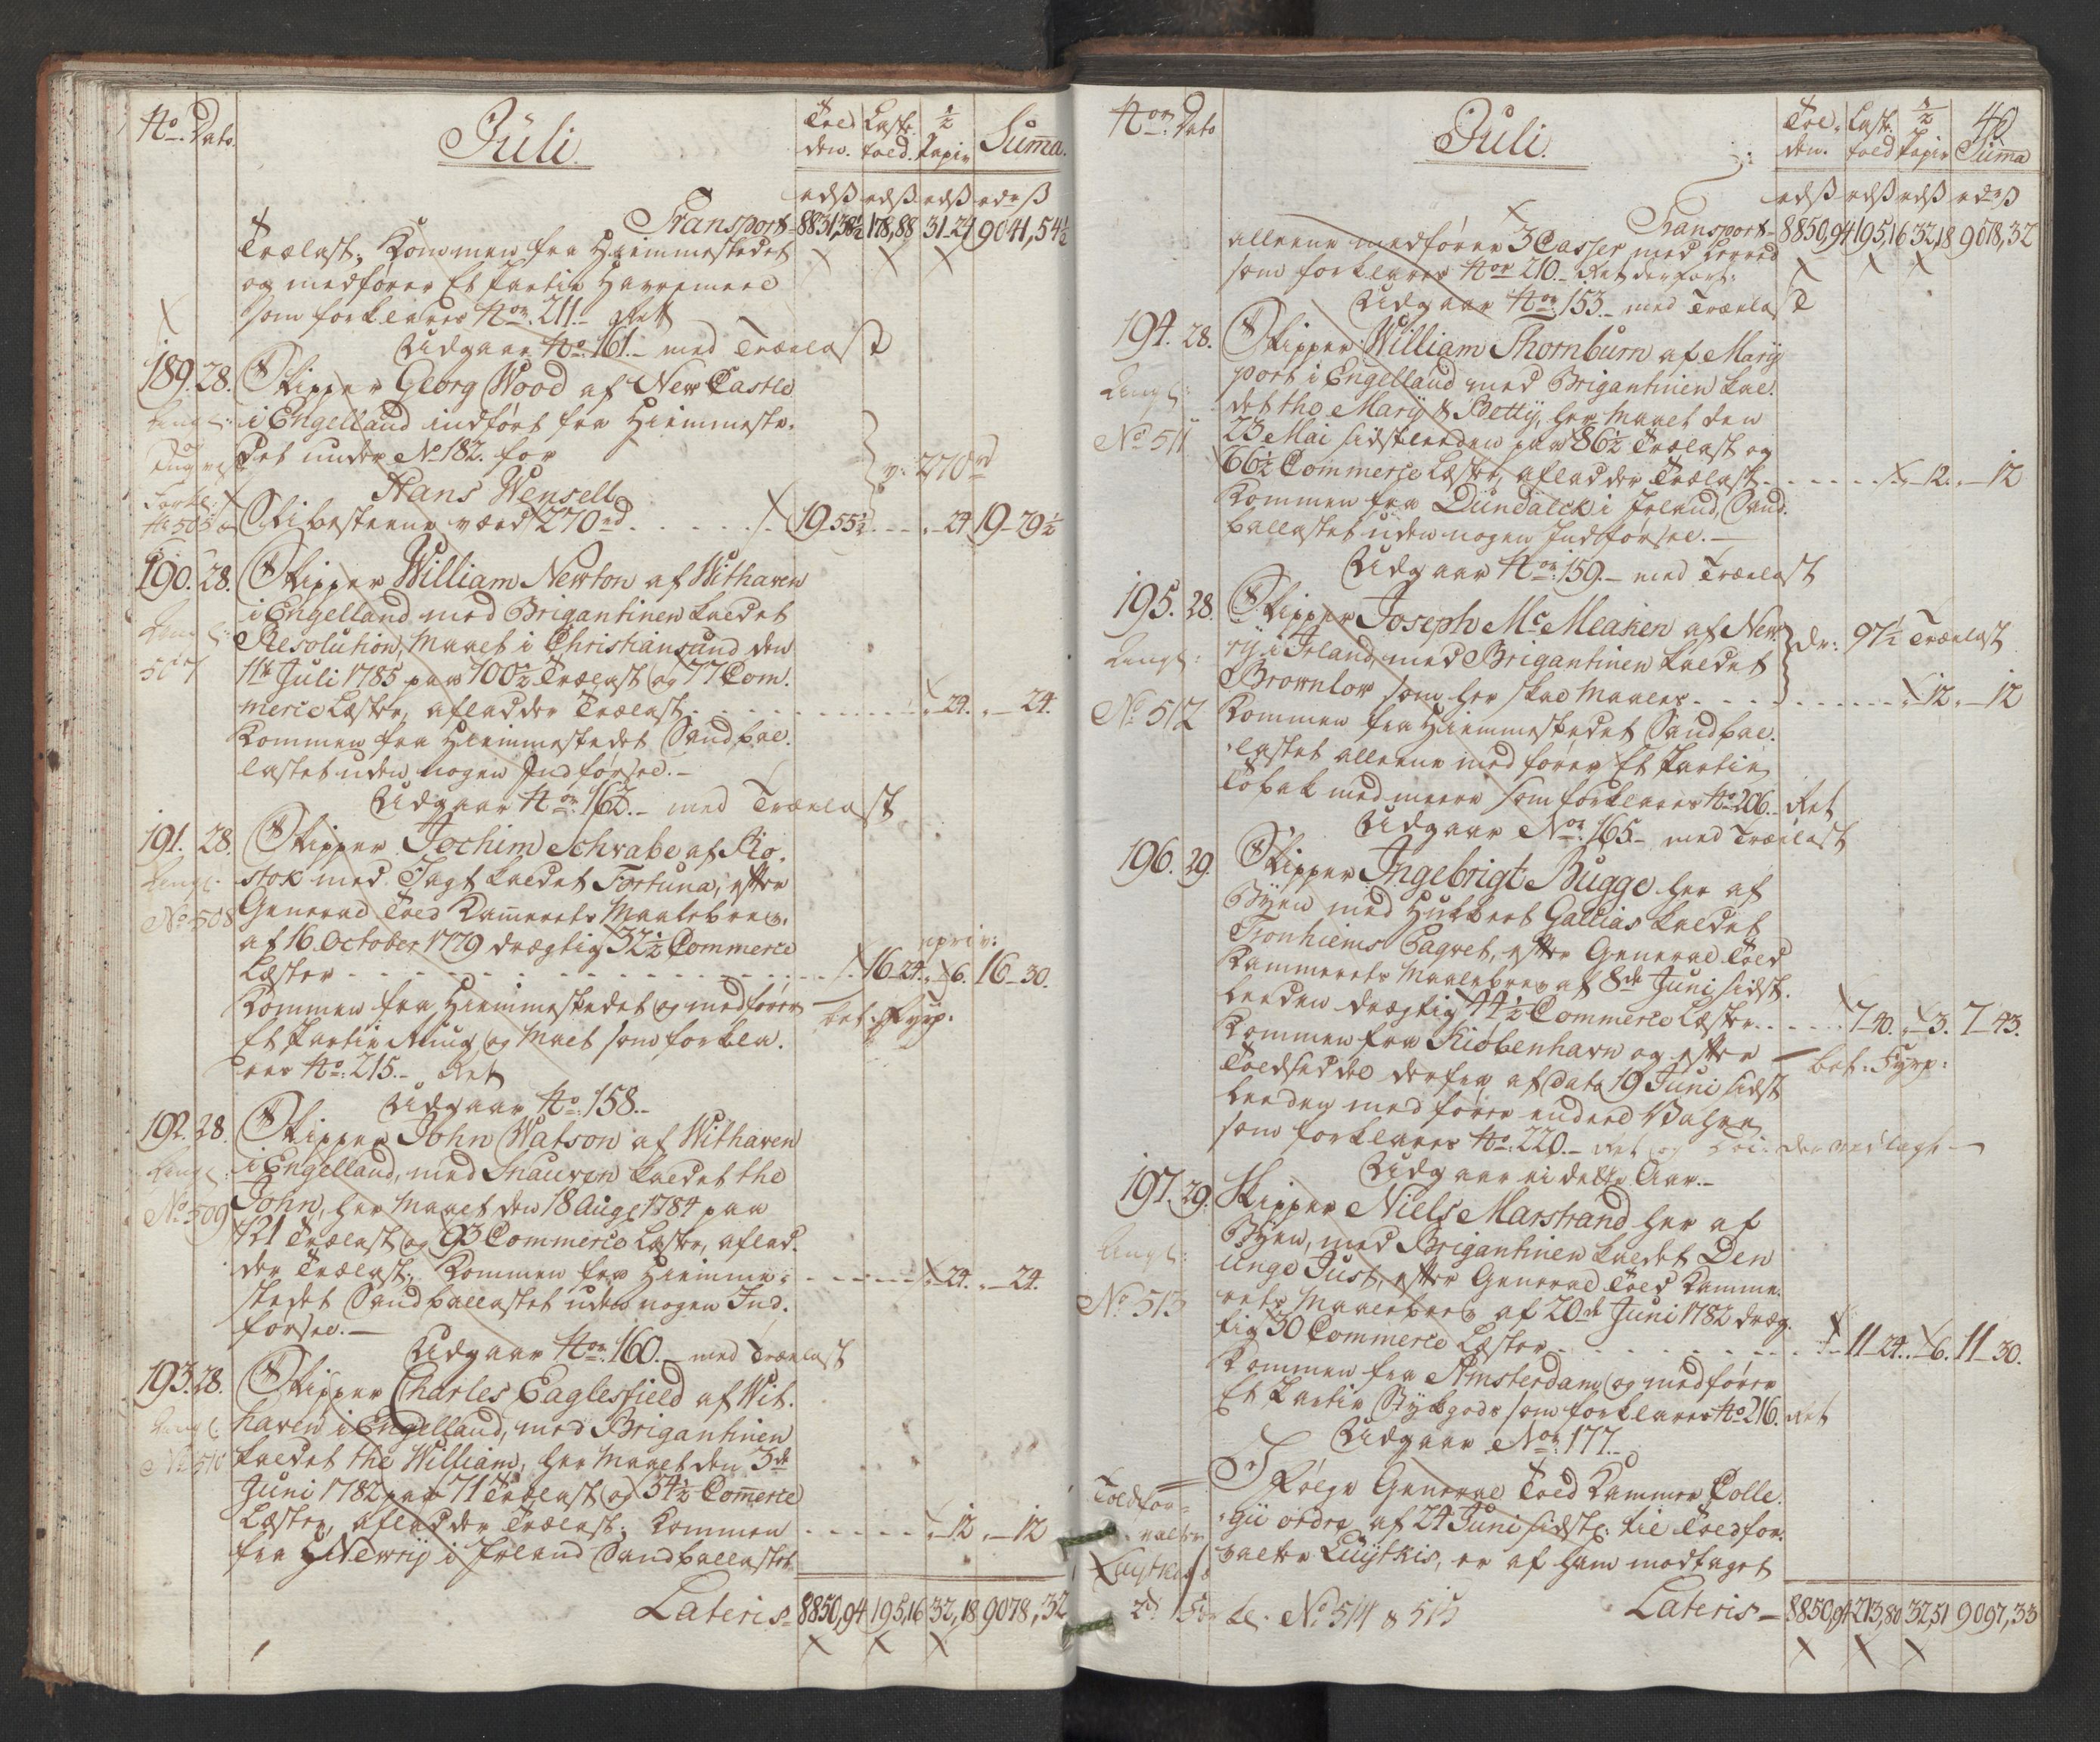 No. Dato.
Juli
Tolden. Laste told. ½ Papir Summa.
rd ß rd ß rd ß rdr ß
Transport 8831,38½ 178,88 31-24 9041,54½
Trælast; kommen fra Hiemmestedet
og medfører Et Partie Havremeel
som forklares No. 211. Rett
Udgaar No. 161. med Trælast
189. 28. Skipper Georg Wood af New Castle
i Engelland indført fra Hiemmeste-
det under No 182. for
Hans Wensell
v: 270 rd
Slibesteene værd 270 rd 19 55½ - 24 19-79½
190. 28. Skipper William Newton af Withaven
i Engelland med Brigantinen kaldet
Resolution, Maalt i Christiansund den
11te Juli 1785 paa 100½ Trælast og 77 Com-
merce Læster, aflad der Trælast - 24. - 24.
507
kommen fra Hiemmestedet Sandbal-
lastet uden nogen Indførsel.
Udgaar No. 162. med Trælast
191. 28. Skipper Jochim Schvabe af Ro-
stok med Jagt kaldet Fortuna, efter
No 508
General Told Kammerets Maalebrev
af 16. October 1779 drægtig 32½ Commerce
upriv:
Læster 16-24. 6. 16-30.
kommen fra Hiemmestedet og medfører
bet: Fyrp:
Et Partie Rug og Malt som forkla-
res No. 215. Ret
Udgaar No. 158.
192. 28. Skipper John Watson af Withaven
i Engelland, med Snauven kaldet the
No 509
John, her Maalt den 18 Aug 1784 paa
121 Trælast og 93 Commerce Læster, aflad-
der Trælast; kommen fra Hiemme- - 24. - 24.
stedet Sandballastet uden nogen Ind-
førsel.
Udgaar No. 160. med Trælast
193. 28. Skipper Charles Eaglesfield af Wit-
haven i Engelland, med Brigantinen
No 510
kaldet the William, her Maalt den 3de
Juni 1782 paa 71 Trælast og 54½ Comerce
Læster, aflad der Trælast; kommen - 12 - 12
fra Newrÿ i Irland Sandballastet
Lateris 8850,94 195,16 32,18 9078,32
No. Dato
Juli.
46
Tolden. Last told ½ Papir Summa
rd ß rd ß rd ß rdr ß
Transport 8850,94 195,16 32,18 9078,32
alleene medfører 3 Casser med Lerred
som forklares No. 210. Ret derfort:
Udgaar No. 153. med Trælast
194. 28. Skipper William Thornburn af Mary
port i Engelland med Brigantinen kal-
det the Marÿ & Bettÿ, her Maalt den
No 511
23 Mai sidstleeden paa 86½ Trælast og
66½ Commerce Læster, aflad der Trælast - 12. - 12
kommen fra Dundalck i Irland, Sand-
ballastet uden nogen Indførsel.
Udgaar No. 159. med Trælast
195. 28. Skipper Joseph Mc Meaken af New-
rÿ i Irland, med Brigantinen kaldet
dr: 97½ Trælast
Brownlow som her skal Maales - 12. - 12
No 512
kommen fra Hiemmestedet Sandbal-
lastet alleene medfører Et Partie
Tobak med meere som forklares No 206. Ret
Udgaar No. 165. med Trælast
196. 29. Skipper Ingebrigt Bugge her af
Byen med Hukkert Gallias kaldet
Tronhiems Paqvet, efter General Told
Kammerets Maalebrev af 8de Juni sidst-
leeden drægtig 44½ Commerce Læster 7-40. 3. 7-43.
kommen fra Kiøbenhavn og efter
bet: Fyrp:
Toldseddel derfra af Dato 19 Juni sidst
leeden medfører endeel Vahre
som forklares No. 220. Ret og
Udgaar ei dette Aar.
197. 29. Skipper Niels Marstrand her af
Byen, med Brigantinen kaldet Den
unge Just, efter General Told Kamme-
No 513
rets Maalebrev af 20de Juni 1782 dræg-
tig 30 Commerce Læster 11-24. 6. 11-30.
kommen fra Amsterdam og medfører
Et Partie Stykgods som forklares No 216. Ret
Udgaar No. 177.
I Følge General Told Kammer Colle-
Toldfor-
valter
gii ordre af 24 Juni sidstl: til Toldfor-
valter Luÿtkis, er af ham modtaget
No 514 & 515
Lateris 8850,94 213,80 32,51 9097,33